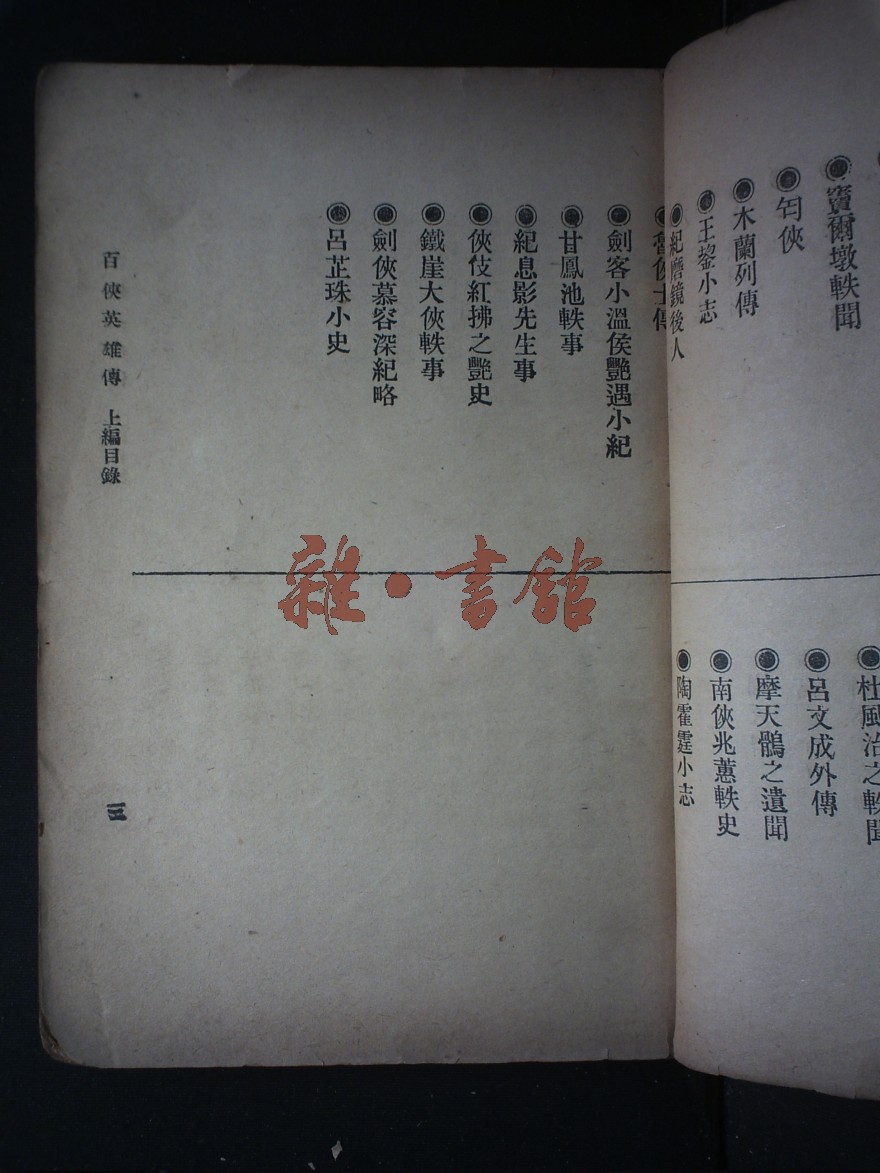 竇爾墩軼聞
匄俠
木蘭列傳
王鍙小志
紀磨鏡後人
杜風治之軼聞
呂文成外傳
摩天鶻之遺聞
南俠兆蕙軼史
陶霍霆小志
劍客小溫侯艷遇小紀
甘鳳池軼事
紀息影先生事
俠伎紅拂之艷史
鐵崖大俠軼事
劍俠慕容深紀略
呂芷珠小史
百俠英雄傳 上編目錄
三
雜·書館